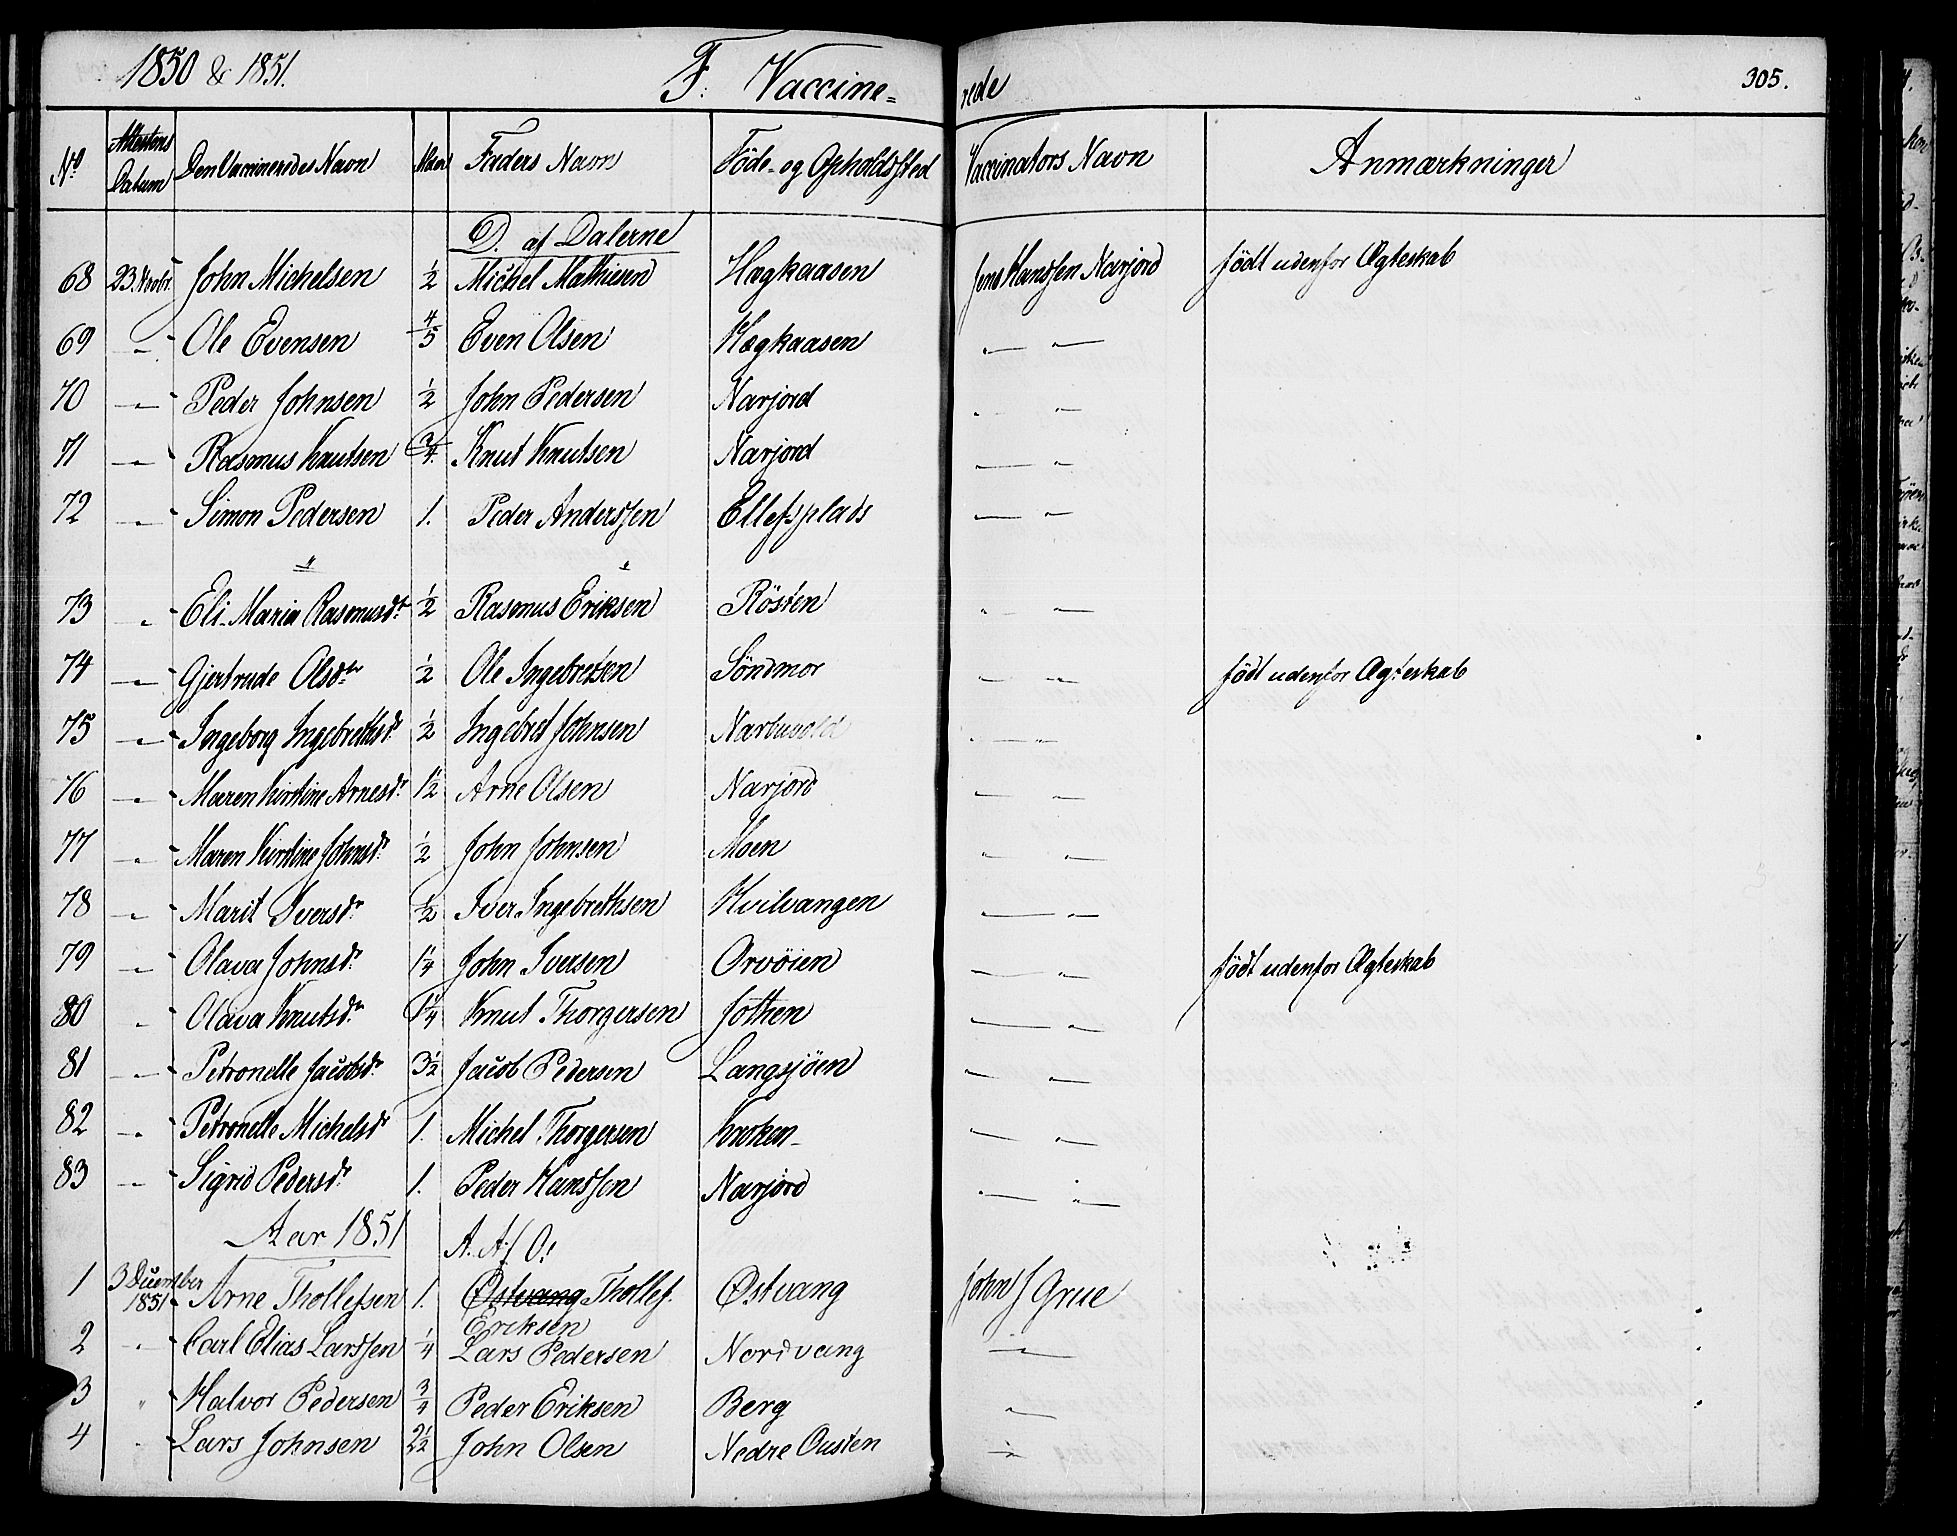 1850 & 1851. F. Vaccine= rede 305.
No Attestens Datum Den Vaccineredes Navn Alder Faders Navn Föde- og Opholdssted Vaccinators Navn Anmærkninger
D. af Dalerne
68 23 Novbr. John Michelsen 1/2 Michel Mathiesen Hægkaasen Jens Hanssen Narjord födt udenfor Ægteskab
69 -„- Ole Evensen 4/5 Even Olsen Hægkaasen -„-
70 -„- Peder Johnsen 1/2 John Pedersen Narjord -„-
71 -„- Rasmus Knutsen 3/4. Knut Knutsen Narjord -„-
72 -„- Simon Pedersen 1. Peder Anderssen Ellefsplads -„-
" "
73 -„- Eli-Maria Rasmusdr 1/2 Rasmus Eriksen Rösten -„-
74 -„- Gjertrude Olsdtr 1/2 Ole Ingebretsen Söndmor -„- födt udenfor Ægteskab
75 -„- Ingeborg Ingebrethsdr 1/2 Ingebret Johnsen Narbuvold -„-
76 -„- Maren Kirstine Arnesdr 1 1/2 Arne Olsen Narjord -„-
77 -„- Maren Kirstine Johnsdr 1/2 John Johnsen Moen -„-
78 -„- Marit Iversdr 1/2 Iver Ingebrethsen Hvilvangen -„-
79 -„- Olava Johnsdr 1 1/4 John Iversen Orvöien -„- födt udenfor Ægteskab
80 -„- Olava Knutsdr 1 1/4 Knut Thorgersen Jotten -„-
81 -„- Petronelle Jacobsdr 3 1/2 Jacob Pedersen Langsjöen -„-
82 -„- Petronelle Michelsdr 1. Michel Thorgersen Kroken -„-
83 -„- Sigrid Pedersdr 1. Peder Hanssen Narjord -„-
Aar 1851 A. Af O.
1 3 December 1851 Arne Thollefsen 1. Østvang Thollef. Østvang John J Grue
Eriksen
2 -„- Carl Elias Larssen 1/4 Lars Pedersen Nordvang -„-
3 „ Halvor Pedersen 3/4 Peder Eriksen Berg -„-
4 „ Lars Johnsen 2 1/2 John Olsen Nedre Ousten -„-